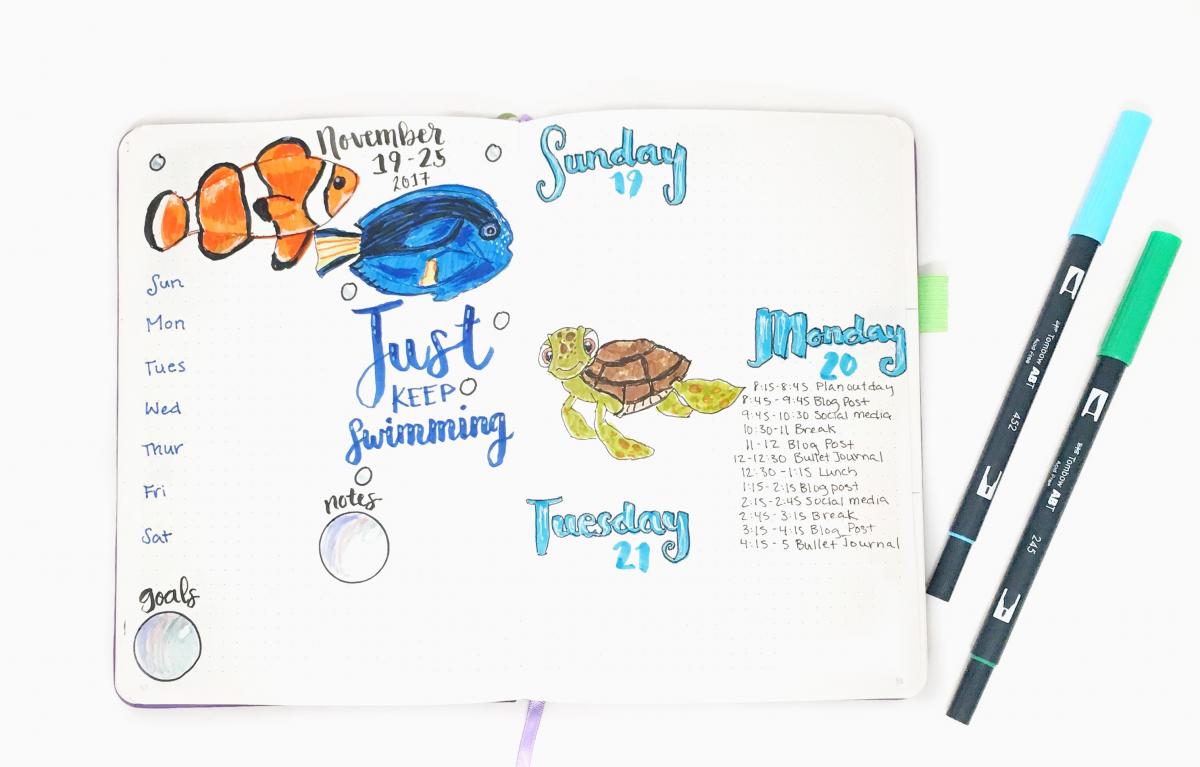 November
19-25
2017
Sun
Mon
Tues
Wed
Thur
Fri
Sat
Just
KEEP
Swimming
notes
goals
Sunday
19
Monday
20
8:15-8:45 Plan out day
8:45-9:45 Blog Post
9:45-10:30 Social media
10:30-11 Break
11-12 Blog Post
12-12:30 Bullet Journal
12:30-1:15 Lunch
1:15-2:15 Blog post
2:15-2:45 Social media
2:45-3:15 Break
3:15-4:15 Blog Post
4:15-5 Bullet Journal
Tuesday
21
Tombow ABT
Acid Free
452
Tombow ABT
Acid Free
245